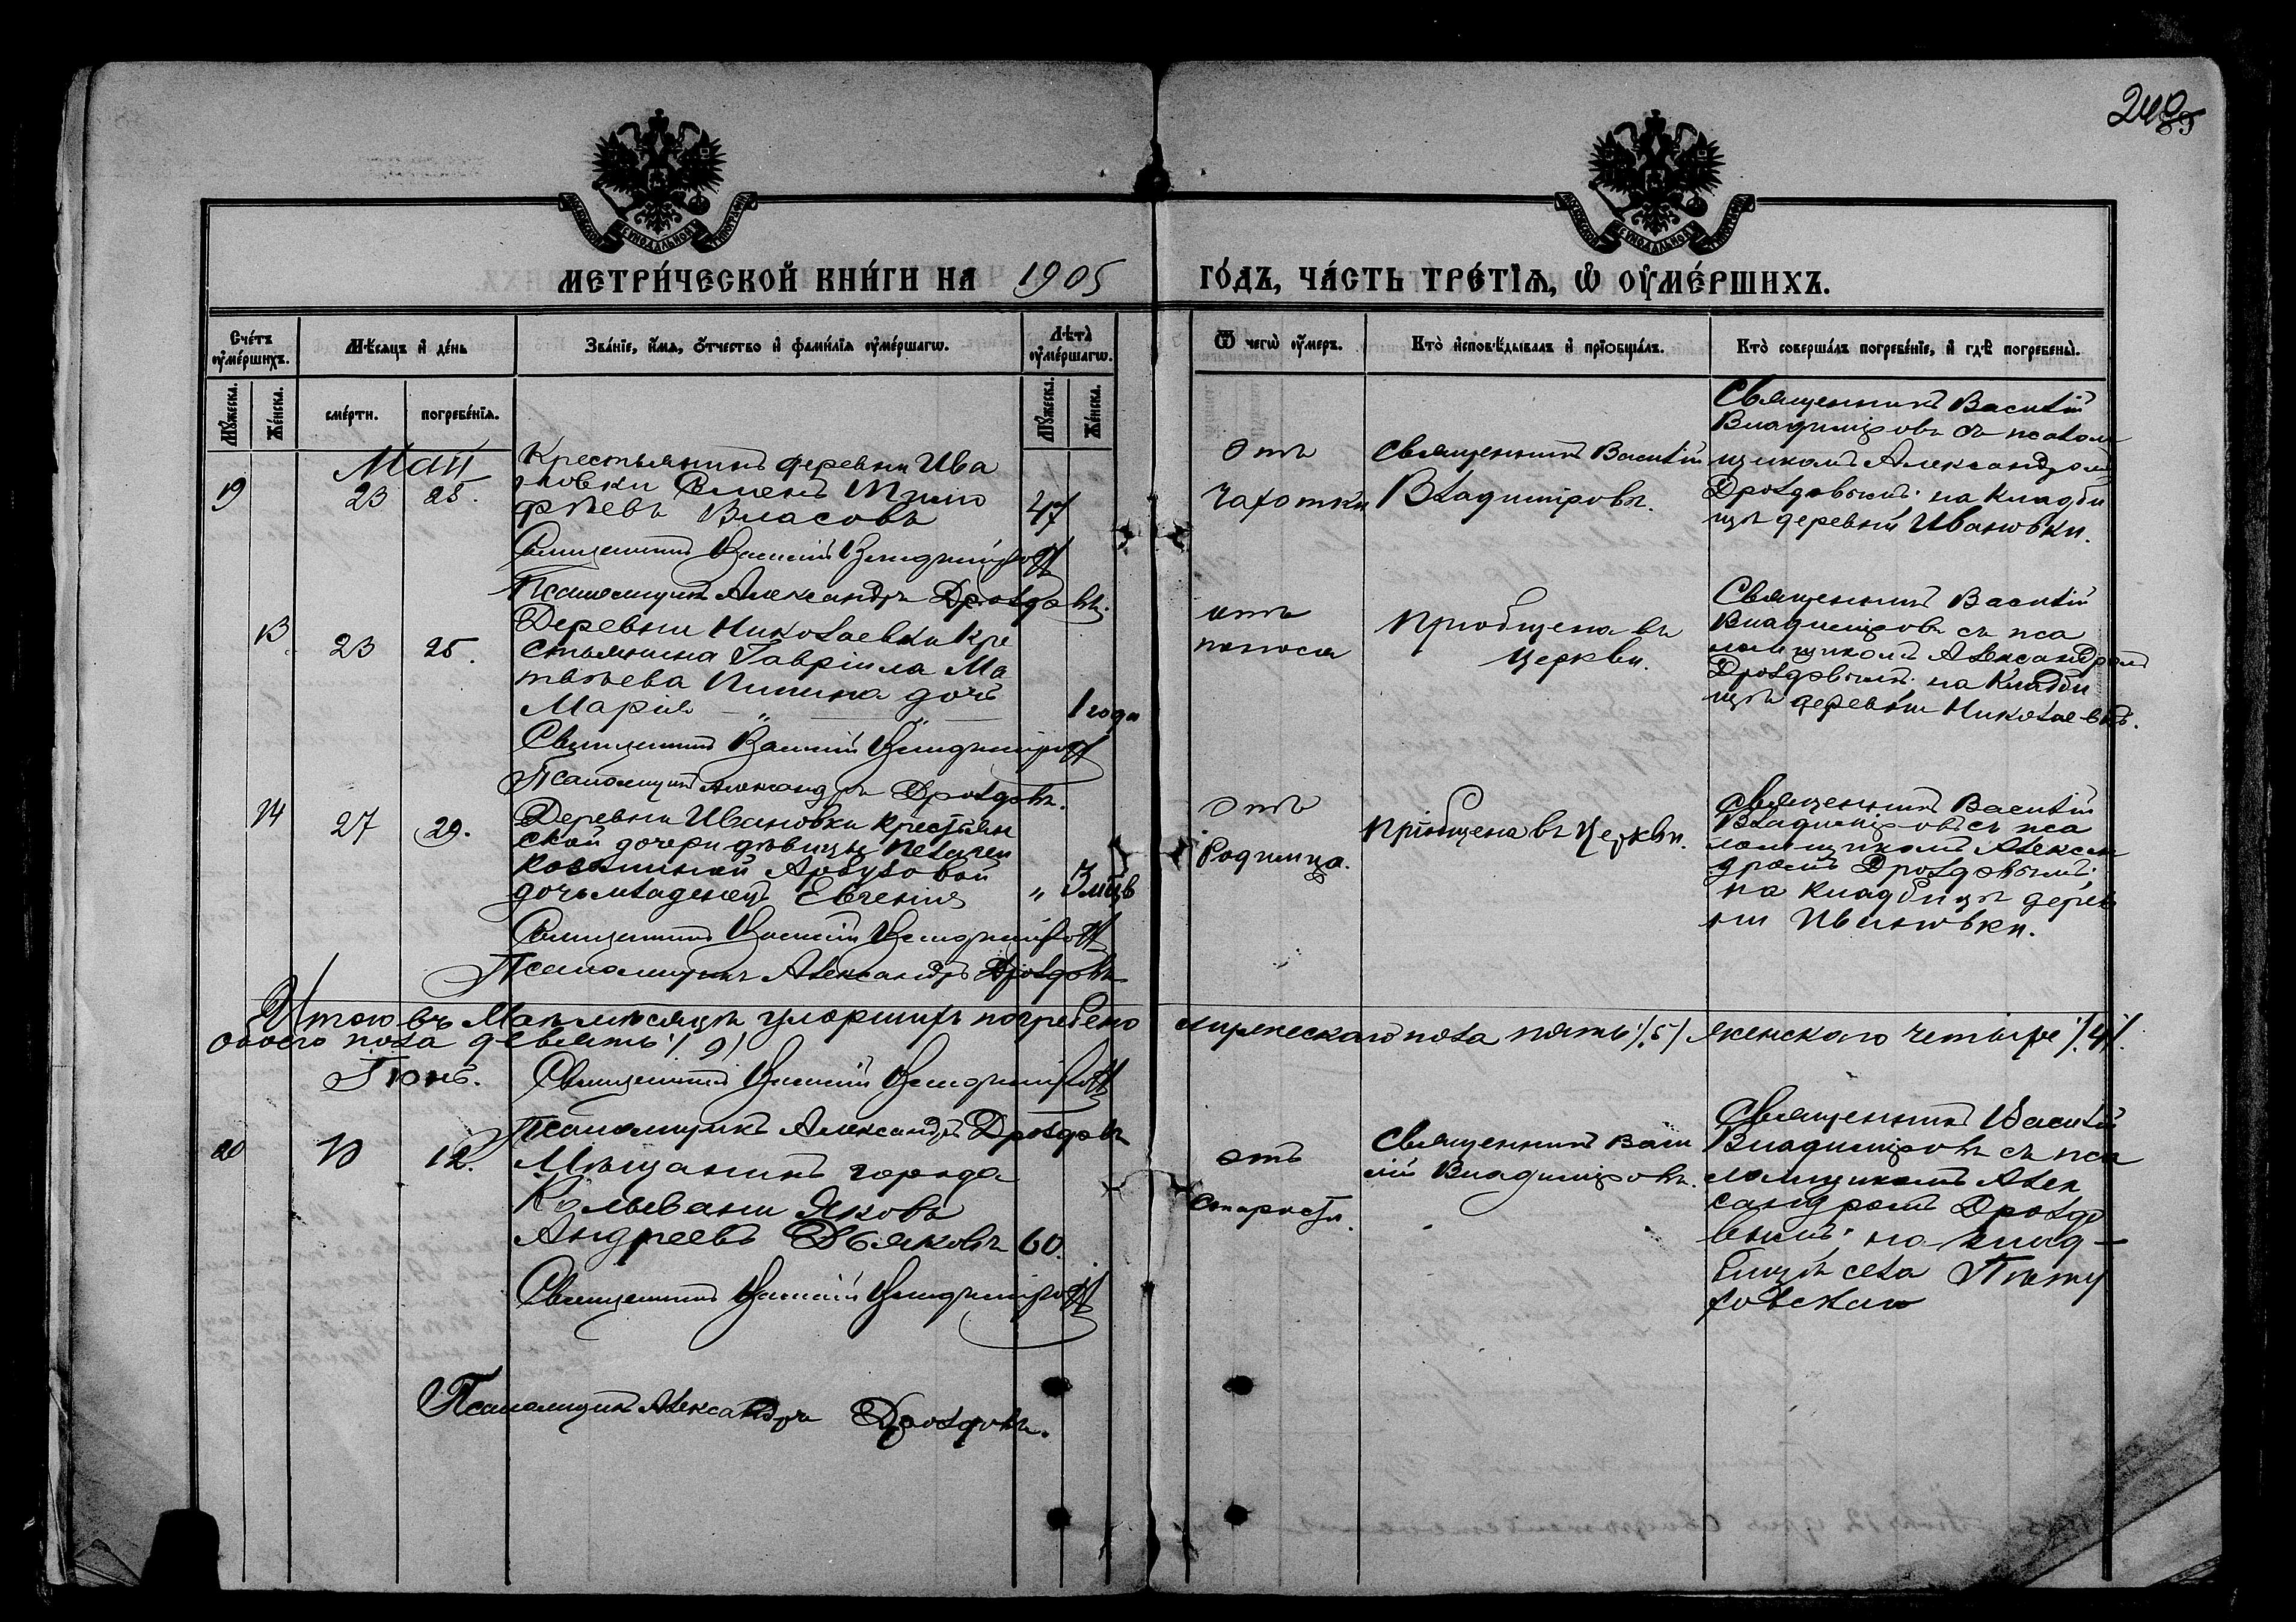 240
МОСКОВСКОЙ СѴНОДАЛЬНОЙ ТИПОГРАФІИ
МОСКОВСКОЙ СѴНОДАЛЬНОЙ ТИПОГРАФІИ
МЕТРИ́ЧЕСКОЙ КНИ́ГИ НА 1905
ГО́ДЪ, ЧА́СТЬ ТРЕ́ТІѦ, Ѡ҆ ОУ҆МЕ́РШИХЪ.
Сче́тъ оу҆ме́ршихъ.
Мѣ́сѧцъ и҆ де́нь
Зва́нїе, и҆́мѧ, ѻ҆́тчество и҆ фамилїѧ оу҆ме́ршагѡ.
Лѣ̑та оу҆ме́ршагѡ.
Ѿ чегѡ̀ оу҆́меръ.
Кто̀ и҆сповѣ́дывалъ и҆ прїѡбща́лъ.
Кто̀ соверша́лъ погребе́нїе, и҆ гдѣ̀ погребены̀.
Мꙋ́жеска.
Же́нска.
сме́рти.
погребе́нїѧ.
Мꙋ́жеска.
Же́нска.
Май
19
23
25.
Крестьянинъ деревни Ива
новки Семенъ Тимо
фѣевъ Власовъ
47
Отъ
чахотки
Священникъ Василій
Владиміровъ.
Священникъ Василій
Владиміровъ съ псалом
щикомъ Александромъ
Дроздовымъ на кладби
щѣ деревни Ивановки.
Священникъ Василій Владиміровъ
Псаломщикъ Александръ Дроздовъ.
13
23
25.
Деревни Николаевки кре
стьянина Гавріила Ма
твѣева Пипина дочь
Марія
1 года
отъ
поноса
Пріобщена въ
Церкви.
Священникъ Василій
Владиміровъ съ пса
ломщикомъ Александромъ
Дроздовымъ на кладби
щѣ деревни Николаевки.
Священникъ Василій Владиміровъ
Псаломщикъ Александръ Дроздовъ.
14
27
29.
Деревни Ивановки крестьян
ской дочери дѣвицы Пелагеи
Арбузовой
дочь младенецъ Евгенія
" 3 мѣсцъ
Отъ
Родимца.
Пріобщена въ Церкви.
Священникъ Василій
Владиміровъ съ пса
ломщикомъ Алексан
дромъ Дроздовымъ
на кладбищѣ дерев
ни Ивановки.
Священникъ Василій Владиміровъ
Псаломщикъ Александръ Дроздовъ
Итого въ Маѣ мѣсяцѣ умершихъ погребено мужескаго пола пять /5/ женскаго четыре /4/.
обоего пола девять /9/
Іюнь.
Священникъ Василій Владиміровъ
Псаломщикъ Александръ Дроздовъ
20
10
12.
Мѣщанинъ города
Колывани Яковъ
Андреевъ Дьяковъ
60.
отъ
старости.
Священникъ Васи
лій Владиміровъ.
Священникъ Василій
Владиміровъ съ пса
ломщикомъ Алек
сандромъ Дроздо
вымъ на клад-
бищѣ села
Священникъ Василій Владиміровъ
Псаломщикъ Александръ Дроздовъ.